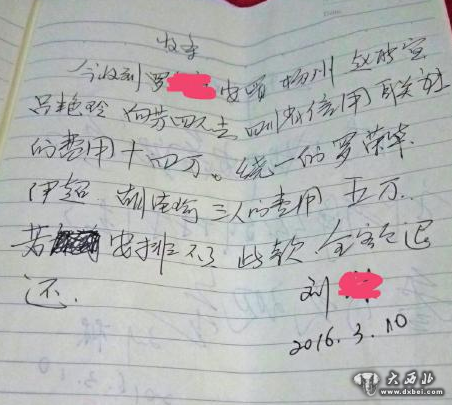 收条
今收到罗 安置 杨川 赵
吕艳玲 四川省信用联社
的费用十四万。统一的罗荣华
伊超 胡 三人的费用 五万.
若 安排不了 此款 全额退
还.
刘
2016.3.10
大西北
www.dxbei.com